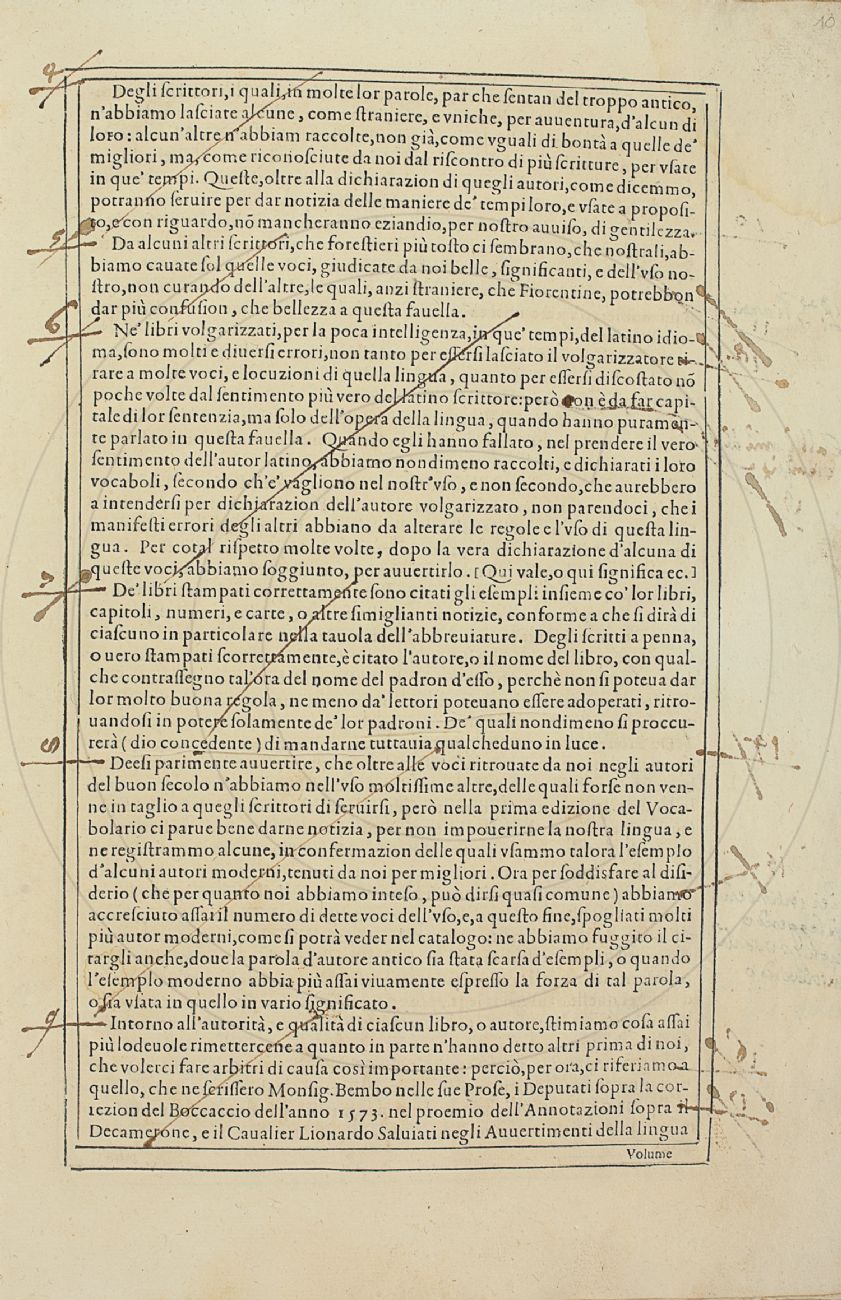 10
4
Degli ſcrittori, i quali, in molte lor parole, par che ſentan del troppo antico,
n'abbiamo laſciate alcune, come ſtraniere, e vniche, per auuentura, d'alcun di
loro: alcun'altre n'abbiam raccolte, non già, come vguali di bontà a quelle de'
migliori, ma, come riconoſciute da noi dal riſcontro di più ſcritture, per vſate
in que' tempi. Queſte, oltre alla dichiarazion di quegli autori, come dicemmo,
potranno ſeruire per dar notizia delle maniere de' tempi loro, e vſate a propoſi-
to, e con riguardo, nõ mancheranno eziandio, per noſtro auuiſo, di gentilezza.
5
Da alcuni altri ſcrittori, che foreſtieri più toſto ci ſembrano, che noſtrali, ab-
biamo cauate ſol quelle voci, giudicate da noi belle, ſignificanti, e dell'vſo no-
ſtro, non curando dell'altre, le quali, anzi ſtraniere, che Fiorentine, potrebbon
dar più confuſion, che bellezza a queſta fauella.
6
Ne' libri volgarizzati, per la poca intelligenza, in que' tempi, del latino idio-
ma, ſono molti e diuerſi errori, non tanto per eſſerſi laſciato il volgarizzatore ti-
rare a molte voci, e locuzioni di quella lingua, quanto per eſſerſi diſcoſtato nõ
poche volte dal ſentimento più vero del latino ſcrittore: però non è da far capi-
tale di lor ſentenzia, ma ſolo dell'opera della lingua, quando hanno puramen-
te parlato in queſta fauella. Quando egli hanno fallato, nel prendere il vero
ſentimento dell'autor latino, abbiamo nondimeno raccolti, e dichiarati i loro
vocaboli, ſecondo ch'e' vagliono nel noſtr'vſo, e non ſecondo, che aurebbero
a intenderſi per dichiarazion dell'autore volgarizzato, non parendoci, che i
manifeſti errori degli altri abbiano da alterare le regole e l'vſo di queſta lin-
gua. Per cotal riſpetto molte volte, dopo la vera dichiarazione d'alcuna di
queſte voci, abbiamo ſoggiunto, per auuertirlo. [Qui vale, o qui ſignifica ec.]
7
De' libri ſtampati correttamente ſono citati gli eſempli inſieme co' lor libri,
capitoli, numeri, e carte, o altre ſimiglianti notizie, conforme a che ſi dirà di
ciaſcuno in particolare nella tauola dell'abbreuiature. Degli ſcritti a penna,
o uero ſtampati ſcorrettamente, è citato l'autore, o il nome del libro, con qual-
che contraſſegno tal'ora del nome del padron d'eſſo, perchè non ſi poteua dar
lor molto buona regola, ne meno da' lettori poteuano eſſere adoperati, ritro-
uandoſi in potere ſolamente de' lor padroni. De' quali nondimeno ſi proccu-
rerà (dio concedente) di mandarne tuttauia qualcheduno in luce.
8
Deeſi parimente auuertire, che oltre alle voci ritrouate da noi negli autori
del buon ſecolo n'abbiamo nell'vſo moltiſſime altre, delle quali forſe non ven-
ne in taglio a quegli ſcrittori di ſeruirſi, però nella prima edizione del Voca-
bolario ci parue bene darne notizia, per non impouerirne la noſtra lingua, e
ne regiſtrammo alcune, in confermazion delle quali vſammo talora l'eſemplo
d'alcuni autori moderni, tenuti da noi per migliori. Ora per ſoddisfare al diſi-
derio (che per quanto noi abbiamo inteſo, può dirſi quaſi comune) abbiamo
accreſciuto aſſai il numero di dette voci dell'vſo, e, a queſto fine, ſpogliati molti
più autor moderni, come ſi potrà veder nel catalogo: ne abbiamo fuggito il ci-
targli anche, doue la parola d'autore antico ſia ſtata ſcarſa d'eſempli, o quando
l'eſemplo moderno abbia più aſſai viuamente eſpreſſo la forza di tal parola,
o ſia vſata in quello in vario ſignificato.
9
Intorno all'autorità, e qualità di ciaſcun libro, o autore, ſtimiamo coſa aſſai
più lodeuole rimettercene a quanto in parte n'hanno detto altri prima di noi,
che volerci fare arbitri di cauſa così importante: perciò, per ora, ci riferiamo a
quello, che ne ſcriſſero Monſig. Bembo nelle ſue Proſe, i Deputati ſopra la cor-
rezion del Boccaccio dell'anno 1573. nel proemio dell'Annotazioni ſopra il
Decamerone, e il Caualier Lionardo Saluiati negli Auuertimenti della lingua
Volume